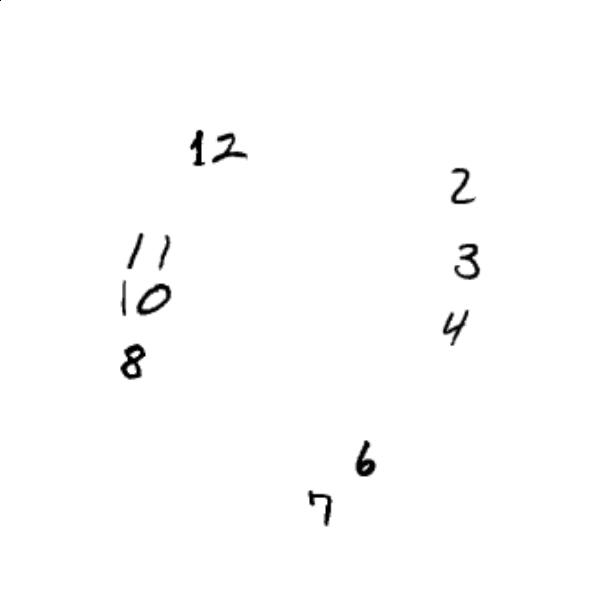 12
2
11
3
10
4
8
6
7